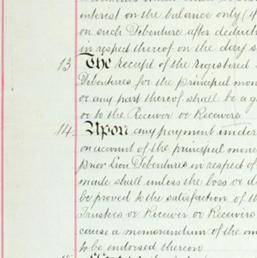 interest on the balance only (if
on such Debenture after deduct
in respect thereof on the day s
13 The receipt of the registered
Debentures for the principal mon
or any part thereof shall be a g
or to the Receiver or Receivers
14 Upon any payment under
on account of the principal mone
prior Lien Debentures in respect of
made shall unless the loss or d
be proved to the satisfaction of th
Trustees or Receiver or Receivers
cause a memorandum of the am
to be endorsed thereon